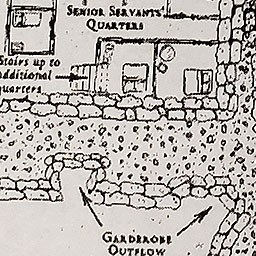 SENIOR SERVANTS'
QUARTERS
Stairs up to
additional
quarters
GARDEROBE
OUTFLOW